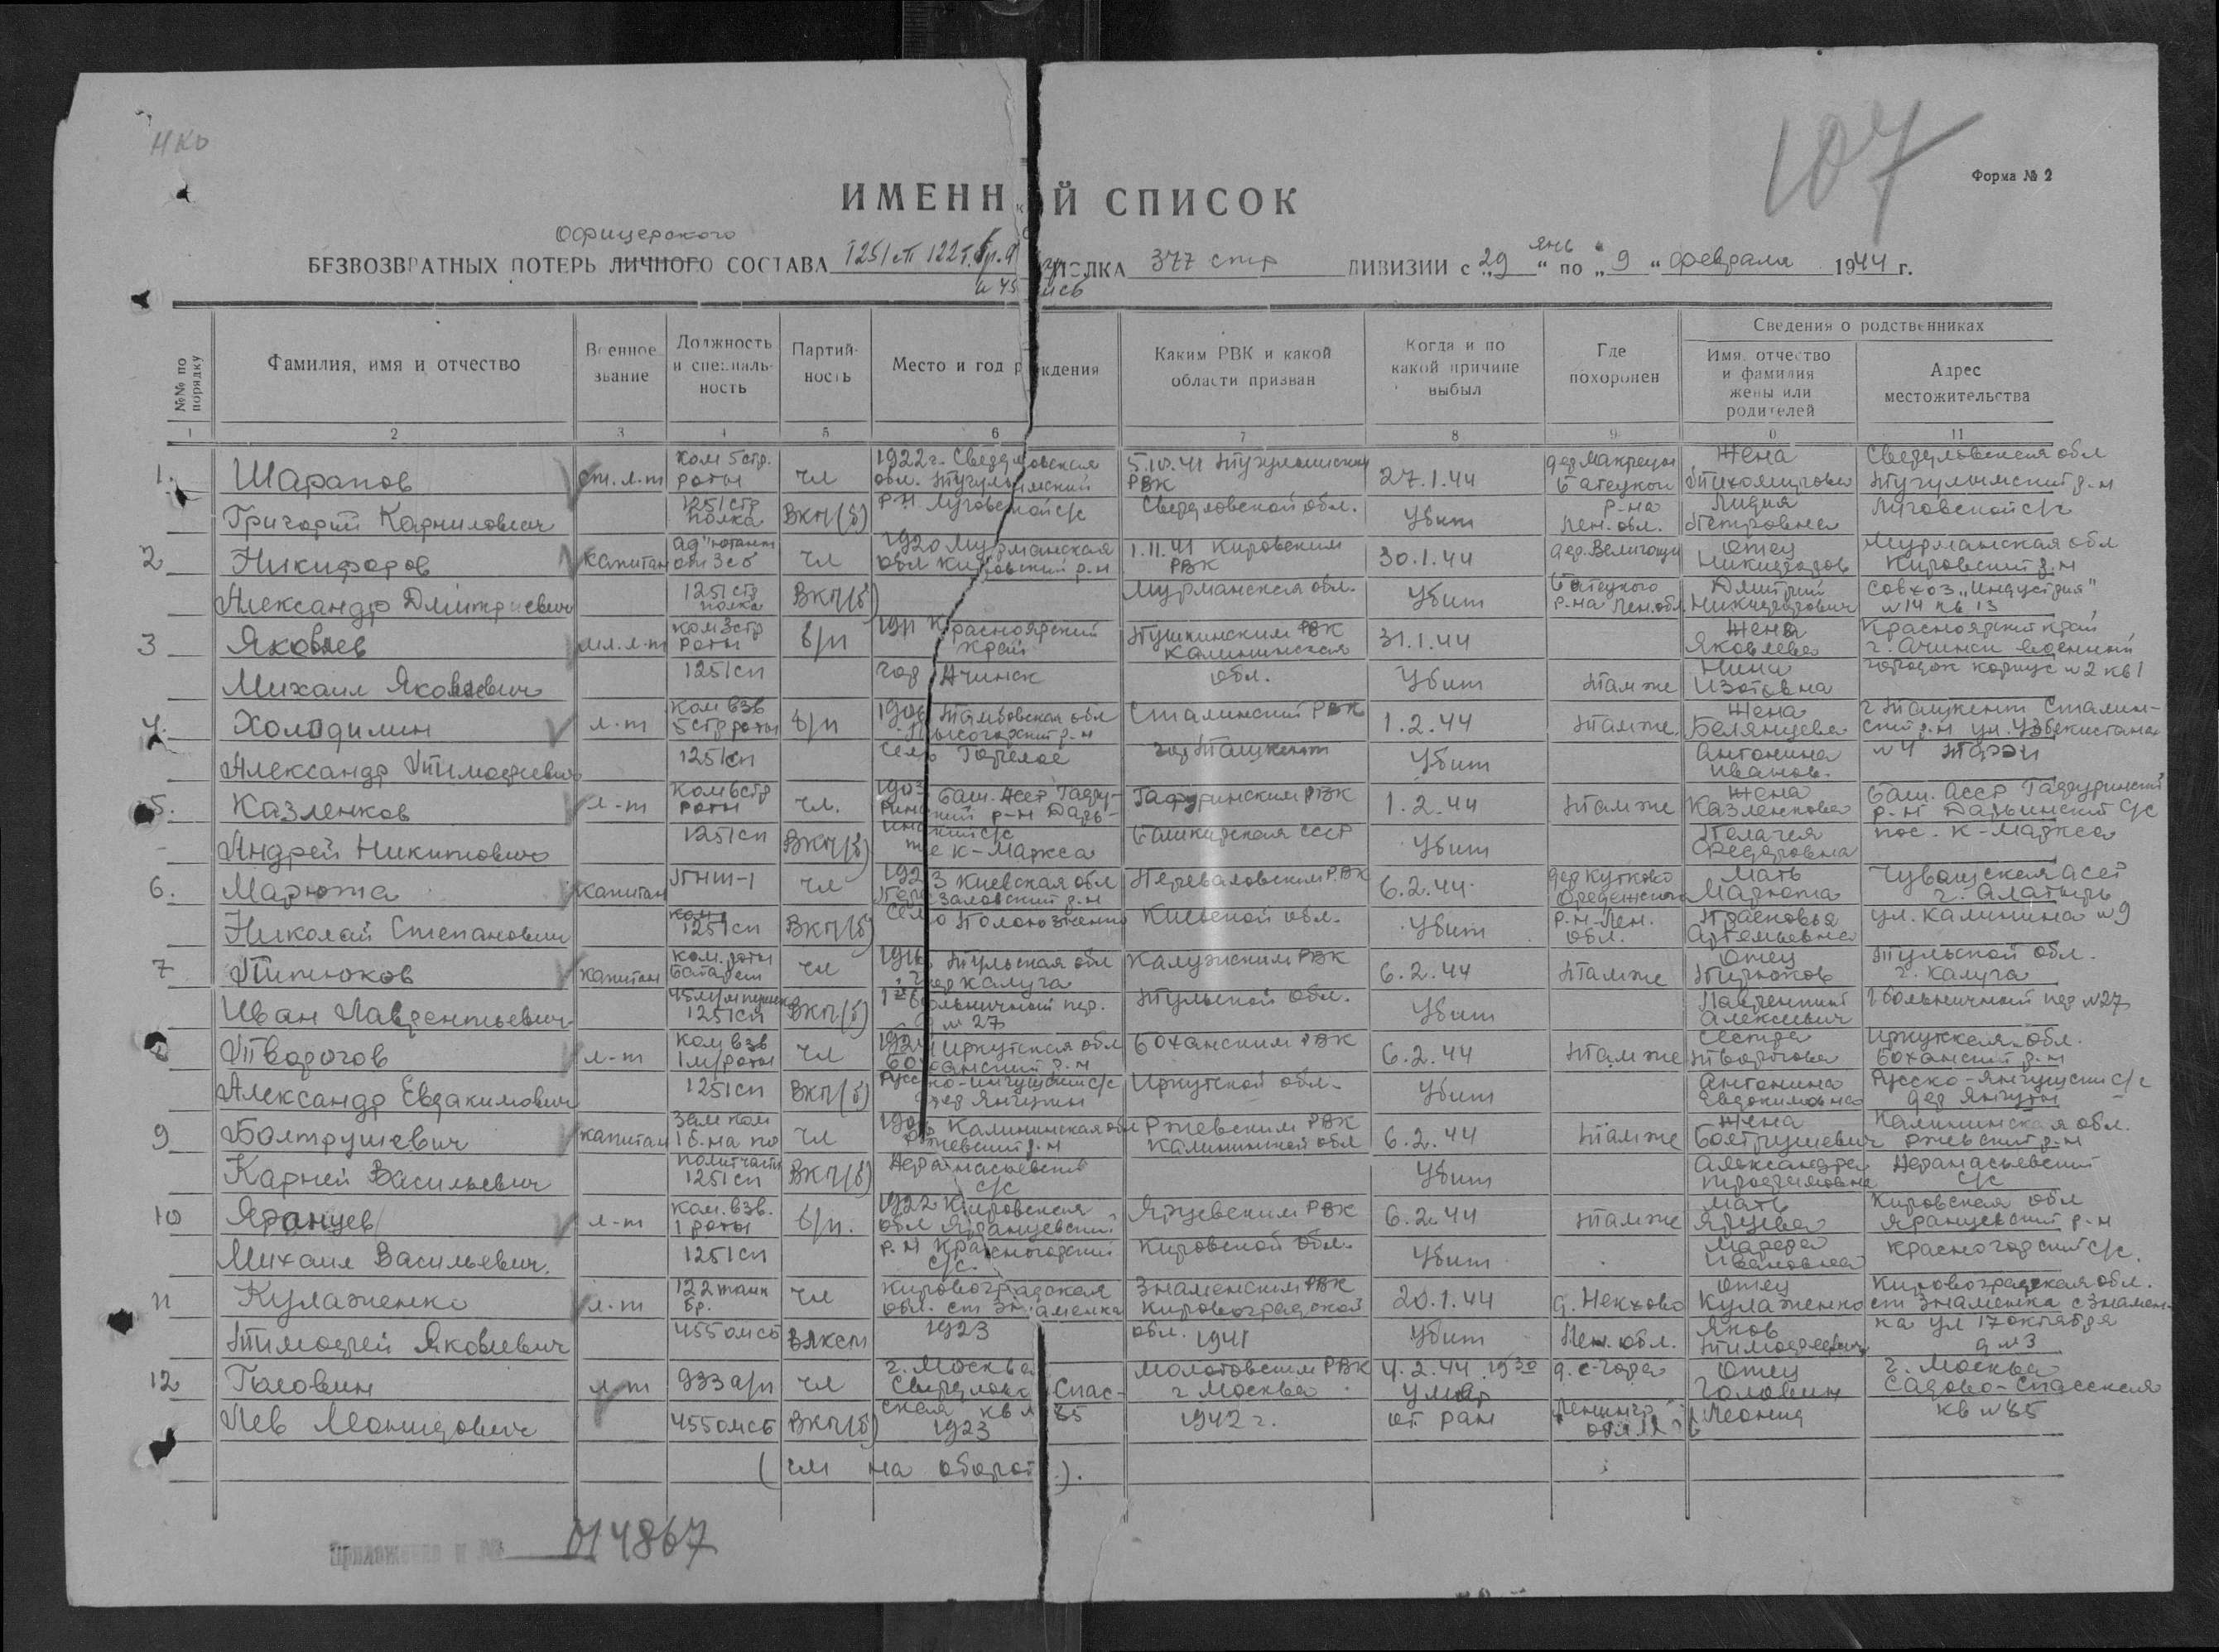 НКО
107
Форма № 2
ИМЕНН Й СПИСОК
Офицерского
БЕЗВОЗВРАТНЫХ ПОТЕРЬ ЛИЧНОГО СОСТАВА 1251 сп 122 т. бр. ПОЛКА 377 стр ДИВИЗИИ с „29 “ янв по „ 9 “ февраля 1944 г.
№№ по порядку
Фамилия, имя и отчество
Военное звание
Должность и специаль-ность
Партий-ность
Место и год рождения
Каким РВК и какой области призван
Когда и по какой причине выбыл
Где похоронен
Сведения о родственниках
Имя, отчество и фамилия жены или родителей
Адрес местожительства
1 2 3 4 5 6 7 8 9 0 11
1. Шарапов ст. л-т ком 5 стр. роты чл 1922 г. Свердловская обл. Тугулымский 5.10.41 Тугулымским РВК 27.1.44 дер Батецкого Жена Тихомирова Свердловская обл Тугулымский р-н
Григорий Карнилович 1251 стр полка ВКП(б) р-н Луговской с/с Свердловской обл. Убит р-на Лен. обл. Лидия Петровна Луговской с/с
2 Никифоров капитан ад"ютант 3 сб чл 1920 Мурманская обл Кировский р-н 1.11.41 Кировским РВК 30.1.44 дер. Велигощи Отец Никифоров Мурманская обл Кировский р-н
Александр Дмитриевич 1251 стр полка ВКП(б) Мурманская обл. Убит Батецкого р-на Лен. обл. Дмитрий Никифорович совхоз „Индустрия" № 14 кв 13
3 Яковлев мл. л-т ком 3 стр роты б/п 1911 Красноярский край Пушкинским РВК Калининская 31.1.44 Жена Яковлева Красноярский край г. Ачинск военный
Михаил Яковлевич 1251 сп гор Ачинск обл. Убит Там же Нина Изотовна городок корпус № 2 кв 1
4. Холодилин л-т ком взв 5 стр роты б/п Тамбовская обл Сталинский РВК 1.2.44 Там же Жена Белянцева г Ташкент Сталин-ский р-н ул. Узбекистана
Александр Тимофеевич 1251 сп село Горелое гор Ташкент Убит Антонина Иванов. № 4
5. Казленков л-т ком 6 стр роты чл. 1903 Баш. АССР Гафу-ринский р-н Гафуринским РВК 1.2.44 Там же Жена Казленкова Баш. АССР Гафуринский р-н с/с
Андрей Никитович 1251 сп ВКП(б) К-Маркса Башкирская СССР Убит Пелагея Федоровна пос. К-Маркса
6. Марюта капитан ПНШ-1 чл 1923 Киевская обл Переваловским РВК 6.2.44 дер Кутково Оредежского Мать Марюта Чувашская АССР г. Алатырь
Николай Степанович 1251 сп ВКП(б) село Киевской обл. Убит р-н Лен. обл. Прасковья Артемьевна ул. Калинина № 9
7 Питюков капитан ком. роты батареи чл Тульская обл гор Калуга Калужским РВК 6.2.44 Там же Отец Тульской обл. г. Калуга
Иван Лаврентьевич 45 м/м 1251 сп ВКП(б) 1-й Больничный пер. д № 27 Тульской обл. Убит Лаврентий Алексеевич 1 больничный пер № 27
8 Творогов л-т ком взв 1 м/роты чл Иркутская обл Боханский р-н Боханским РВК 6.2.44 Там же Сестра Творогова Иркутская обл. Боханский р-н
Александр Евдакимович 1251 сп ВКП(б) Иркутской обл. Убит Антонина Евдокимовна с/с дер Янгуты
9 Болтрушевич капитан зам ком 1 б-на по чл Калининская обл Ржевский р-н Ржевским РВК Калининской обл 6.2.44 Там же Жена Болтрушевич Калининская обл. Ржевский р-н
Карней Васильевич политчасти 1251 сп ВКП(б) с/с Убит Александра с/с
10 Яранцев л-т ком. взв. 1 роты б/п. 1922 Кировская обл Яранцевский Ярцевским РВК 6.2.44 Там же Мать Ярцева Кировская обл Яранцевский р-н
Михаил Васильевич. 1251 сп р-н Красногорский с/с. Кировской обл. Убит Ивановна Красногорский с/с.
11 Кулаженко л-т 122 танк бр. чл Кировоградская обл. ст Знаменка Знаменским РВК Кировоградской 20.1.44 д. Некхово Отец Кулаженко Кировоградская обл. ст Знаменка с Знамен-
Тимофей Яковлевич 455 омсб ВЛКСМ 1923 обл. 1941 Убит Лен. обл. Яков Тимофеевич ка ул 17 октября д № 3
12 Головин л-т 933 а/п чл г. Москва Спас- Молотовским РВК г Москва 4.2.44 19 30 умер Отец Головин г. Москва Садово-Спасская
Лев Леонидович 455 омсб ВКП(б) ская кв № 85 1923 1942 г. от ран Леонид кв № 85
( см на оборот ).
Приложение к № 014867